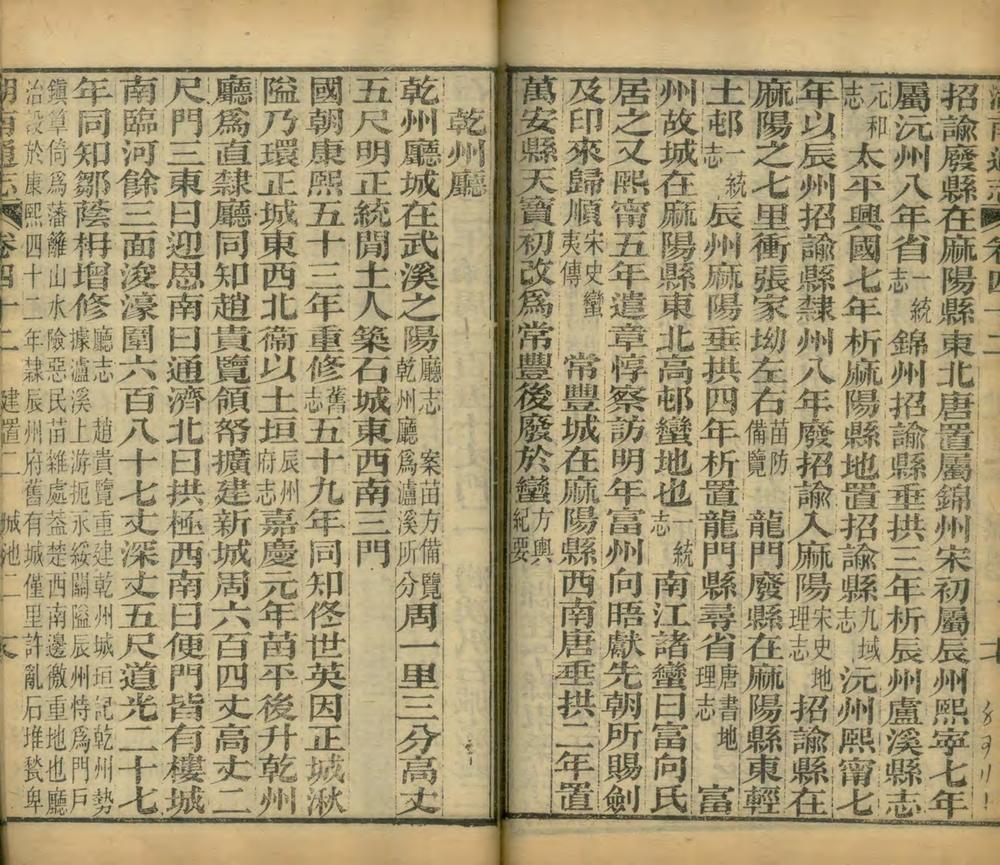 招諭廢縣在麻陽縣東北唐置屬錦州宋初屬辰州熙寧七年
屬沅州八年省一統志錦州招諭縣垂拱三年析辰州盧溪縣志
元和志太平興國七年析麻陽縣地置招諭縣九域志沅州熙甯七
年以辰州招諭縣隸州八年廢招諭入麻陽宋史地理志招諭縣在
麻陽之七里衝張家坳左右苗防備覽龍門廢縣在麻陽縣東輕
土邨一統志辰州麻陽垂拱四年析置龍門縣尋省唐書地理志富
州故城在麻陽縣東北高邨蠻地也一統志南江諸蠻曰富向氏
居之又熙甯五年遣章惇察訪明年富州向晤獻先朝所賜劍
及印來歸順宋史蠻夷傳常豐城在麻陽縣西南唐垂拱二年置
萬安縣天寶初改爲常豐後廢於蠻方輿紀要
乾州廳
乾州廳城在武溪之陽廳志案苗方備覽乾州廳爲瀘溪所分周一里三分高丈
五尺明正統閒土人築石城東西南三門
國朝康熙五十三年重修舊志五十九年同知佟世英因正城湫
隘乃環正城東西北衞以土垣辰州府志嘉慶元年苗平後升乾州
廳爲直隸廳同知趙貴覽領帑擴建新城周六百四丈高丈二
尺門三東曰迎恩南曰通濟北曰拱極西南曰便門皆有樓城
南臨河餘三面浚濠圍六百八十七丈深丈五尺道光二十七
年同知鄒蔭枏增修廳志趙貴覽重建乾州城垣記乾州勢據瀘溪上游扼永綏關隘辰州恃爲門戶
鎮筸倚爲藩籬山水險惡民苗雜處葢楚西南邊徼重地也廳治設於康熙四十二年隸辰州府舊有城僅里許亂石堆甃卑
湖南通志 卷四十二 建置二 城池二